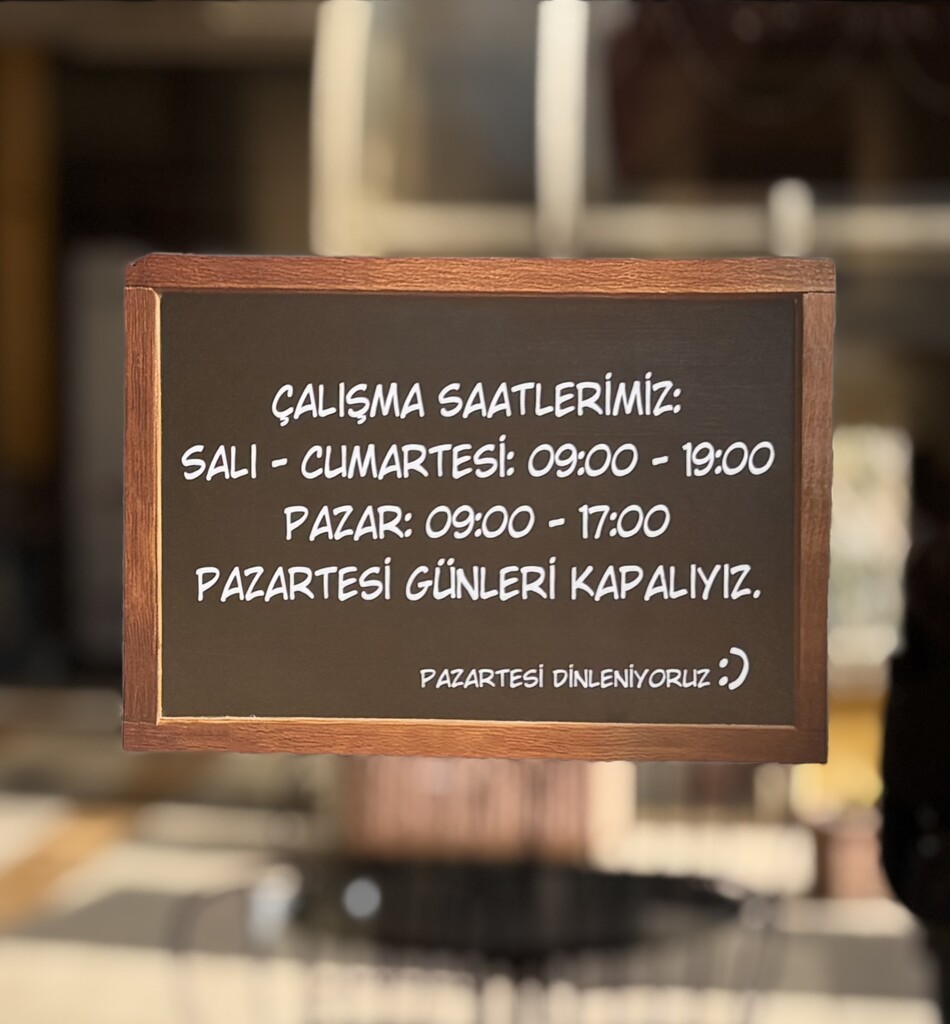 ÇALIŞMA SAATLERİMİZ:
SALI - CUMARTESİ: 09:00 - 19:00
PAZAR: 09:00 - 17:00
PAZARTESİ GÜNLERİ KAPALIYIZ.
PAZARTESİ DİNLENİYORUZ :)